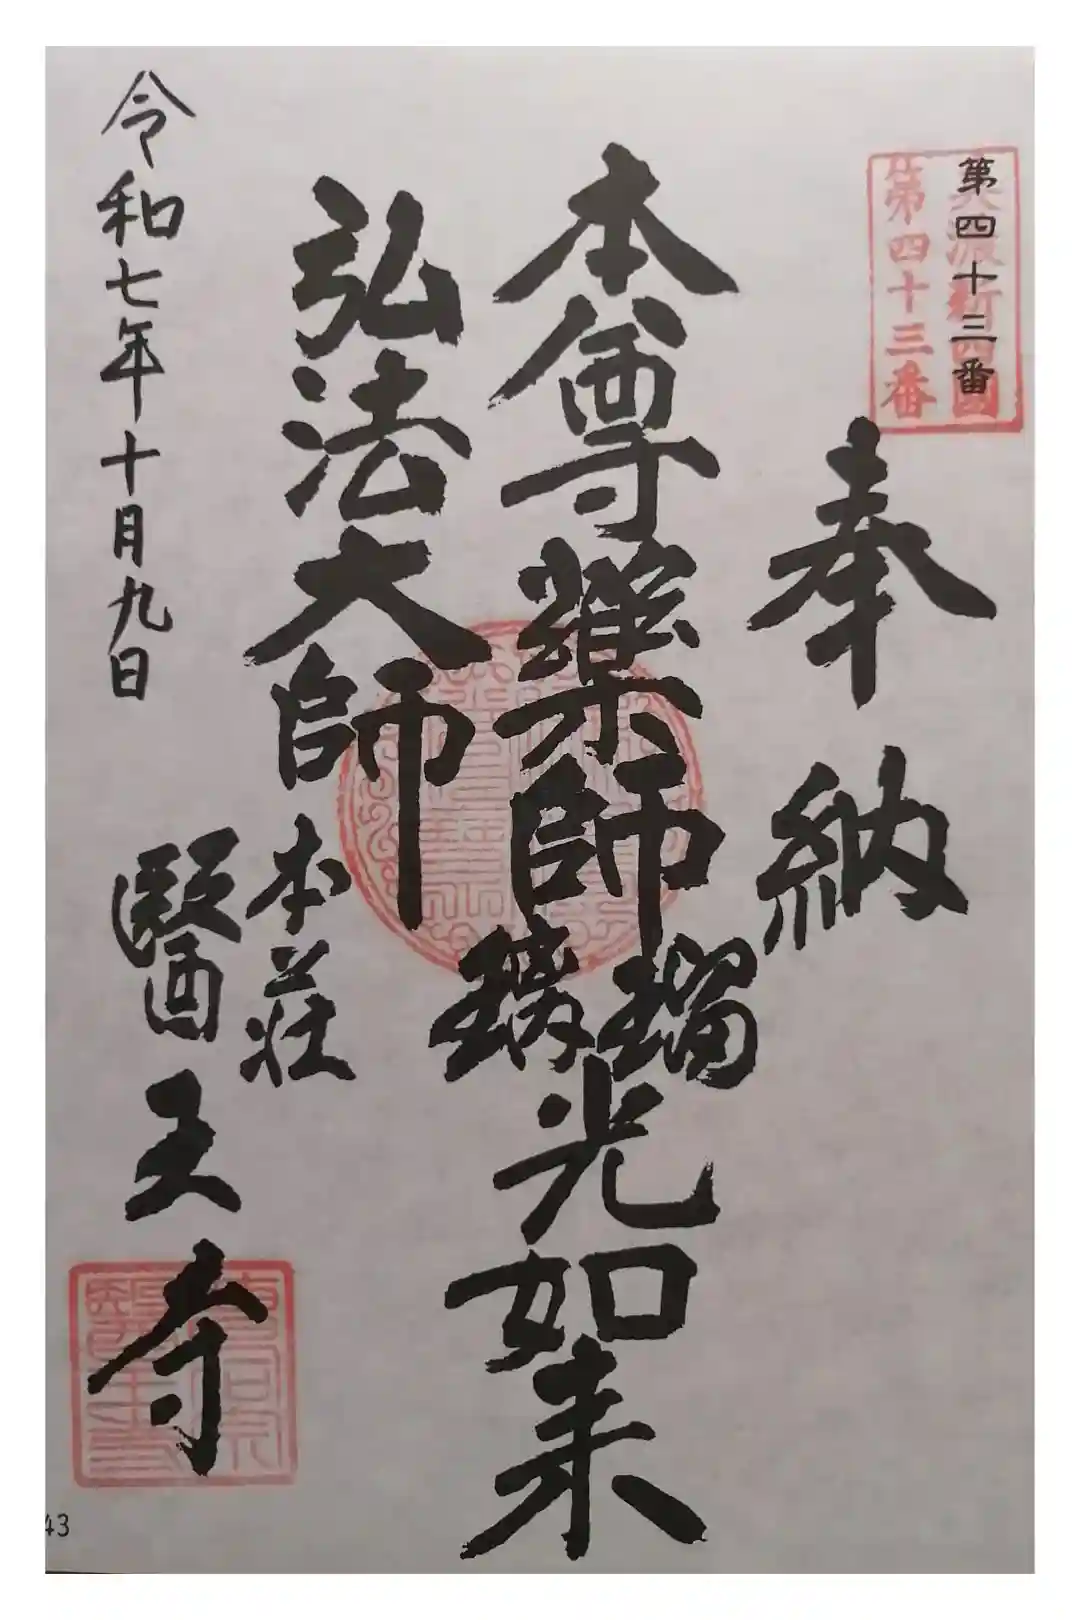 第四十三番
美濃新四國
第四十三番
奉納
本尊藥師瑠璃光如来
弘法大師
本荘
醫王寺
令和七年十月九日
43